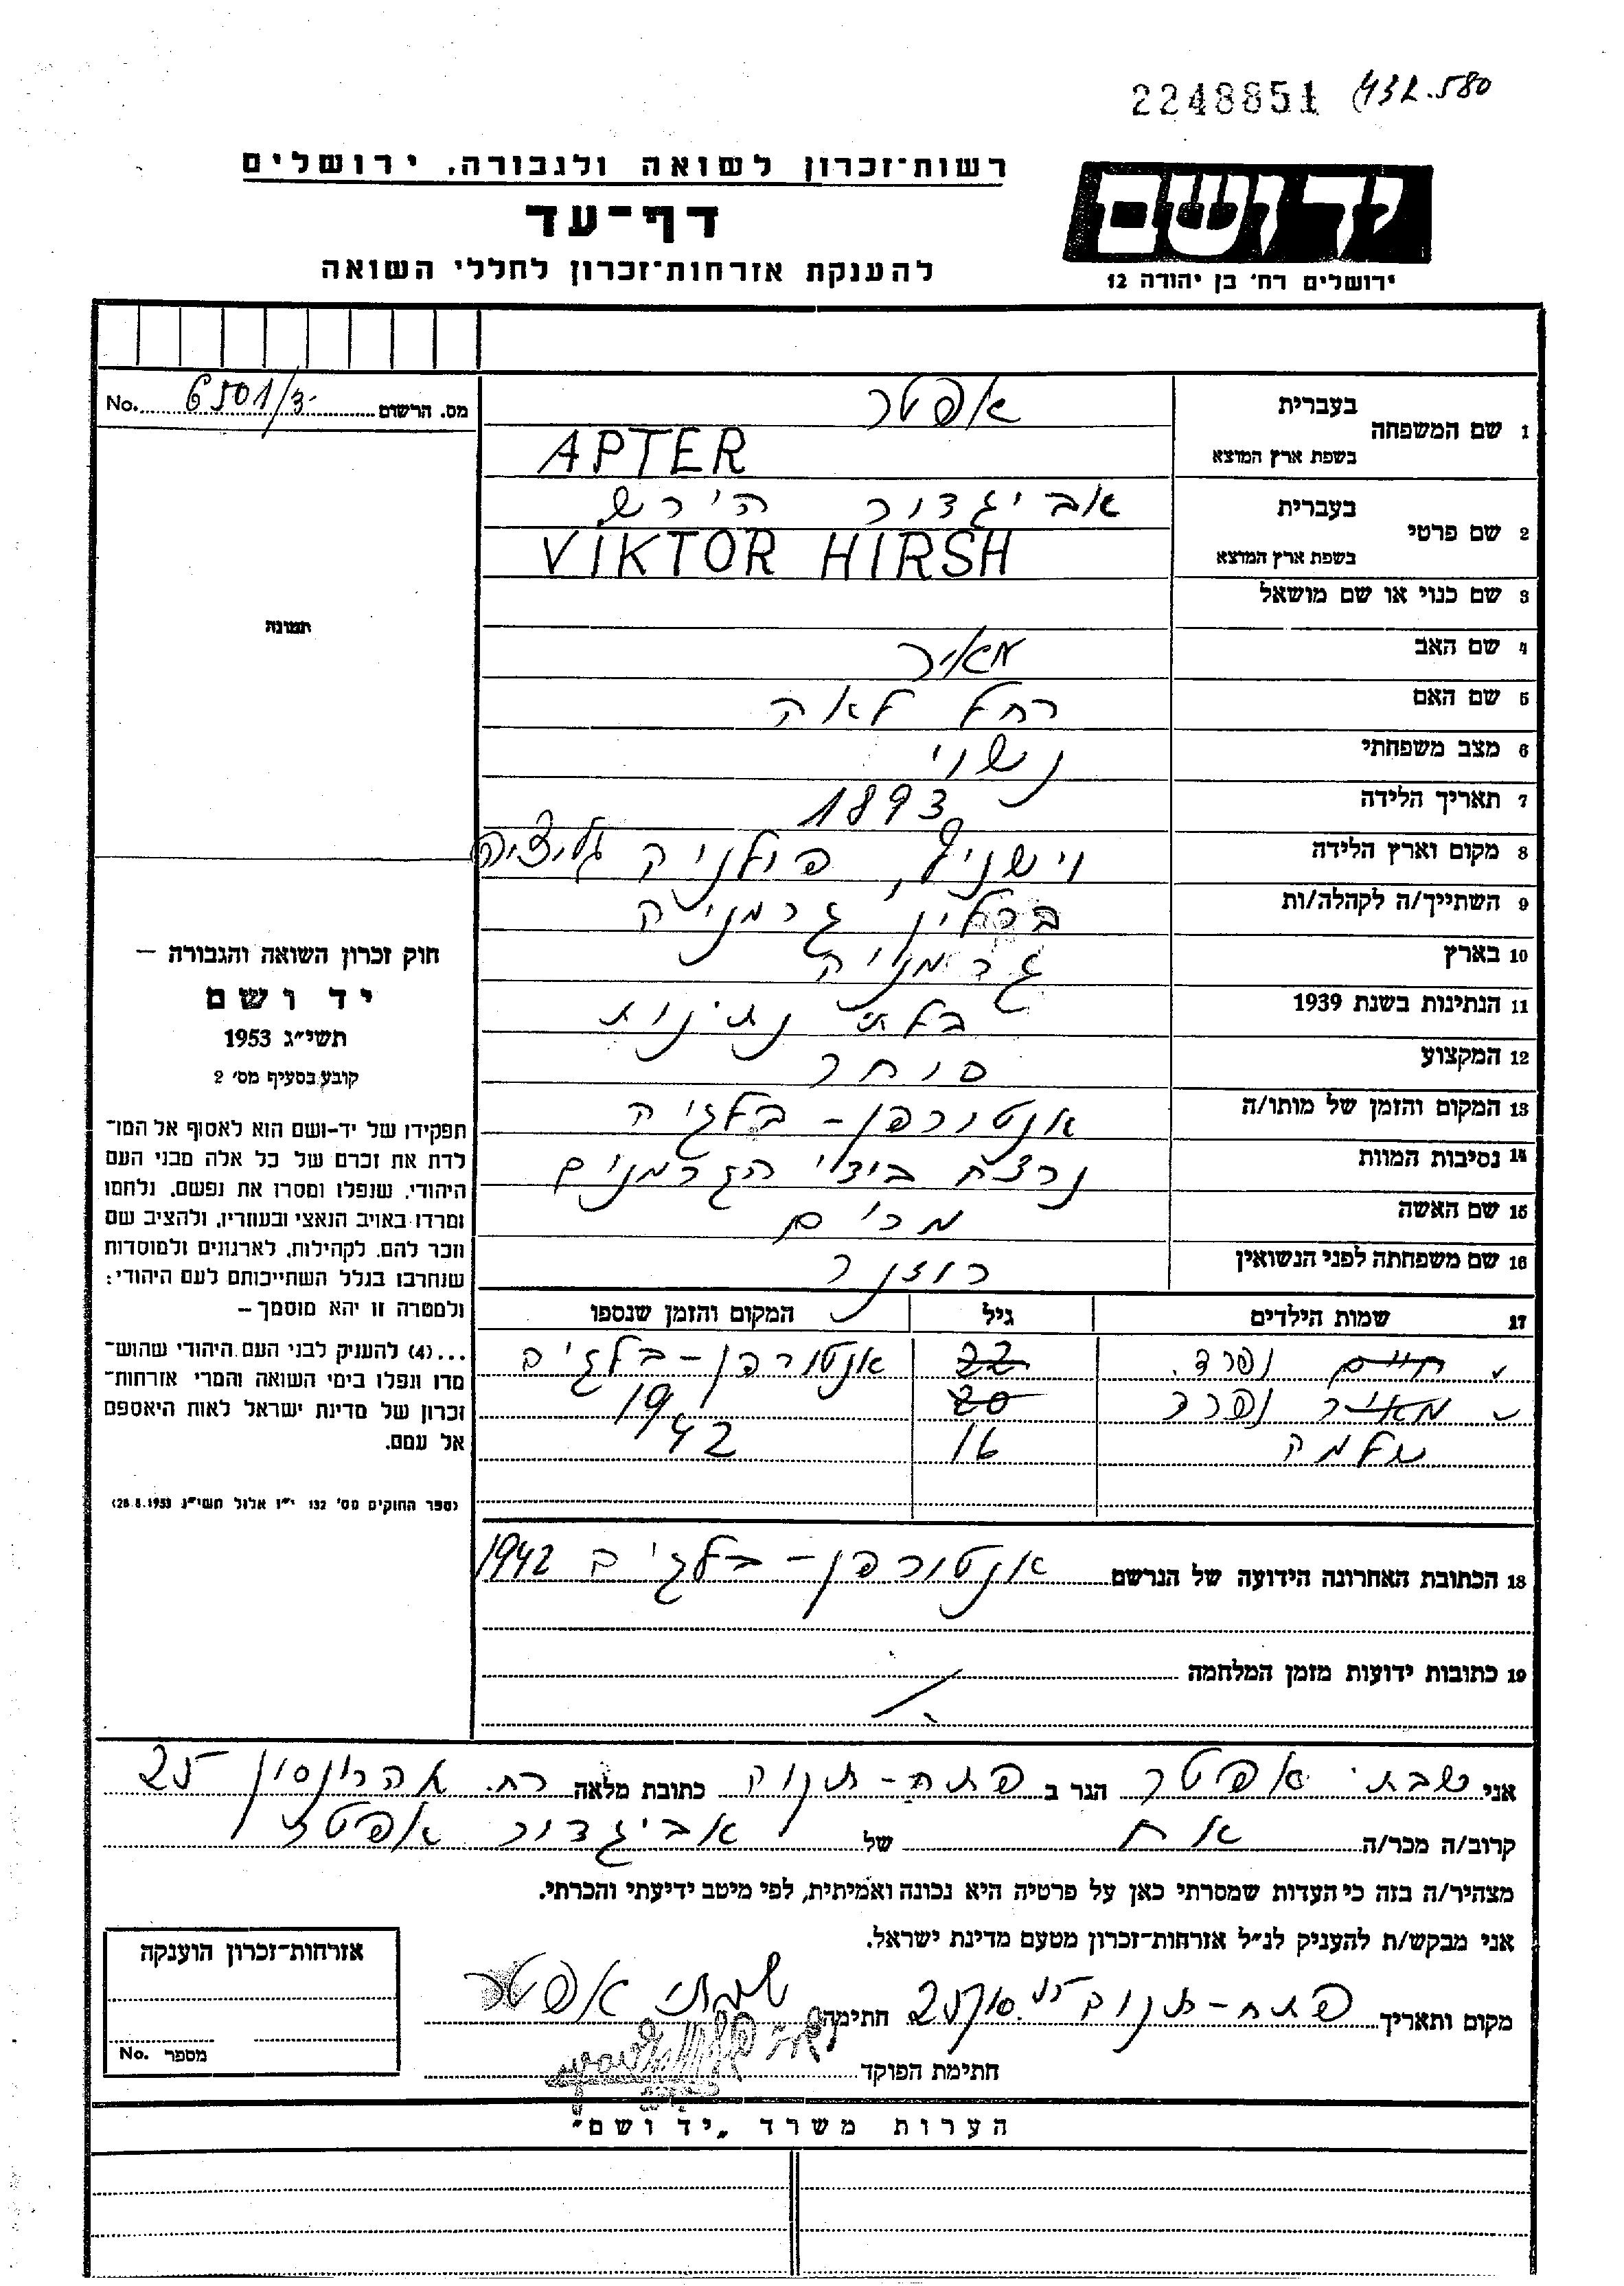 2248851
רשות־זכרון לשואה ולגבורה, ירושלים
יד ושם
דף־עד
ירושלים רח׳ בן יהודה 12
להענקת אזרחות־זכרון לחללי השואה
מס. הרשום No. 6501/3
1 שם המשפחה בעברית אפטר
בשפת ארץ המוצא APTER
2 שם פרטי בעברית אביגדור הירש
בשפת ארץ המוצא VIKTOR HIRSH
3 שם כנוי או שם מושאל
תמונה
4 שם האב מאיר
5 שם האם רחל לאה
6 מצב משפחתי נשוי
7 תאריך הלידה 1893
8 מקום וארץ הלידה פולניה גליציה
9 השתייך/ה לקהלה/ות ברלין גרמניה
10 בארץ גרמניה
11 הנתינות בשנת 1939 בלתי נתינות
12 המקצוע סוחר
13 המקום והזמן של מותו/ה אנטורפן - בלגיה
14 נסיבות המוות נרצח בידי הגרמנים
15 שם האשה מרים
16 שם משפחתה לפני הנשואין רוזנר
17 שמות הילדים גיל המקום והזמן שנספו
חיים נפרד. 22 אנטורפן - בלגיה
מאיר נפרד 20 19
שלמה 16 42
18 הכתובת האחרונה הידועה של הנרשם אנטורפן - בלגיה 1942
19 כתובות ידועות מזמן המלחמה
חוק זכרון השואה והגבורה —
יד ושם
תשי״ג 1953
קובע בסעיף מס׳ 2
תפקידו של יד-ושם הוא לאסוף אל המו־
לדת את זכרם של כל אלה מבני העם
היהודי, שנפלו ומסרו את נפשם, נלחמו
ומרדו באויב הנאצי ובעוזריו, ולהציב שם
וזכר להם, לקהילות, לארגונים ולמוסדות
שנחרבו בגלל השתייכותם לעם היהודי;
ולמטרה זו יהא מוסמך —
...(4) להענק לבני העם היהודי שהוש־
מדו ונפלו בימי השואה והמרי אזרחות־
זכרון של מדינת ישראל לאות היאספם
אל עמם.
(ספר החוקים מס׳ 132 י״ז אלול תשי״ג 28.8.1953)
אני שבתי אפטר הגר ב פתח-תקוה כתובת מלאה רח. אהרונסון 25
קרוב/ה מכר/ה אח של אביגדור אפטר
מצהיר/ה בזה כי העדות שמסרתי כאן על פרטיה היא נכונה ואמיתית, לפי מיטב ידיעתי והכרתי.
אני מבקש/ת להעניק לנ״ל אזרחות־זכרון מטעם מדינת ישראל.
מקום ותאריך פתח-תקוה חתימה שבתי אפטר
חתימת הפוקד
אזרחות־זכרון הוענקה
מספר No.
הערות משרד „יד ושם״